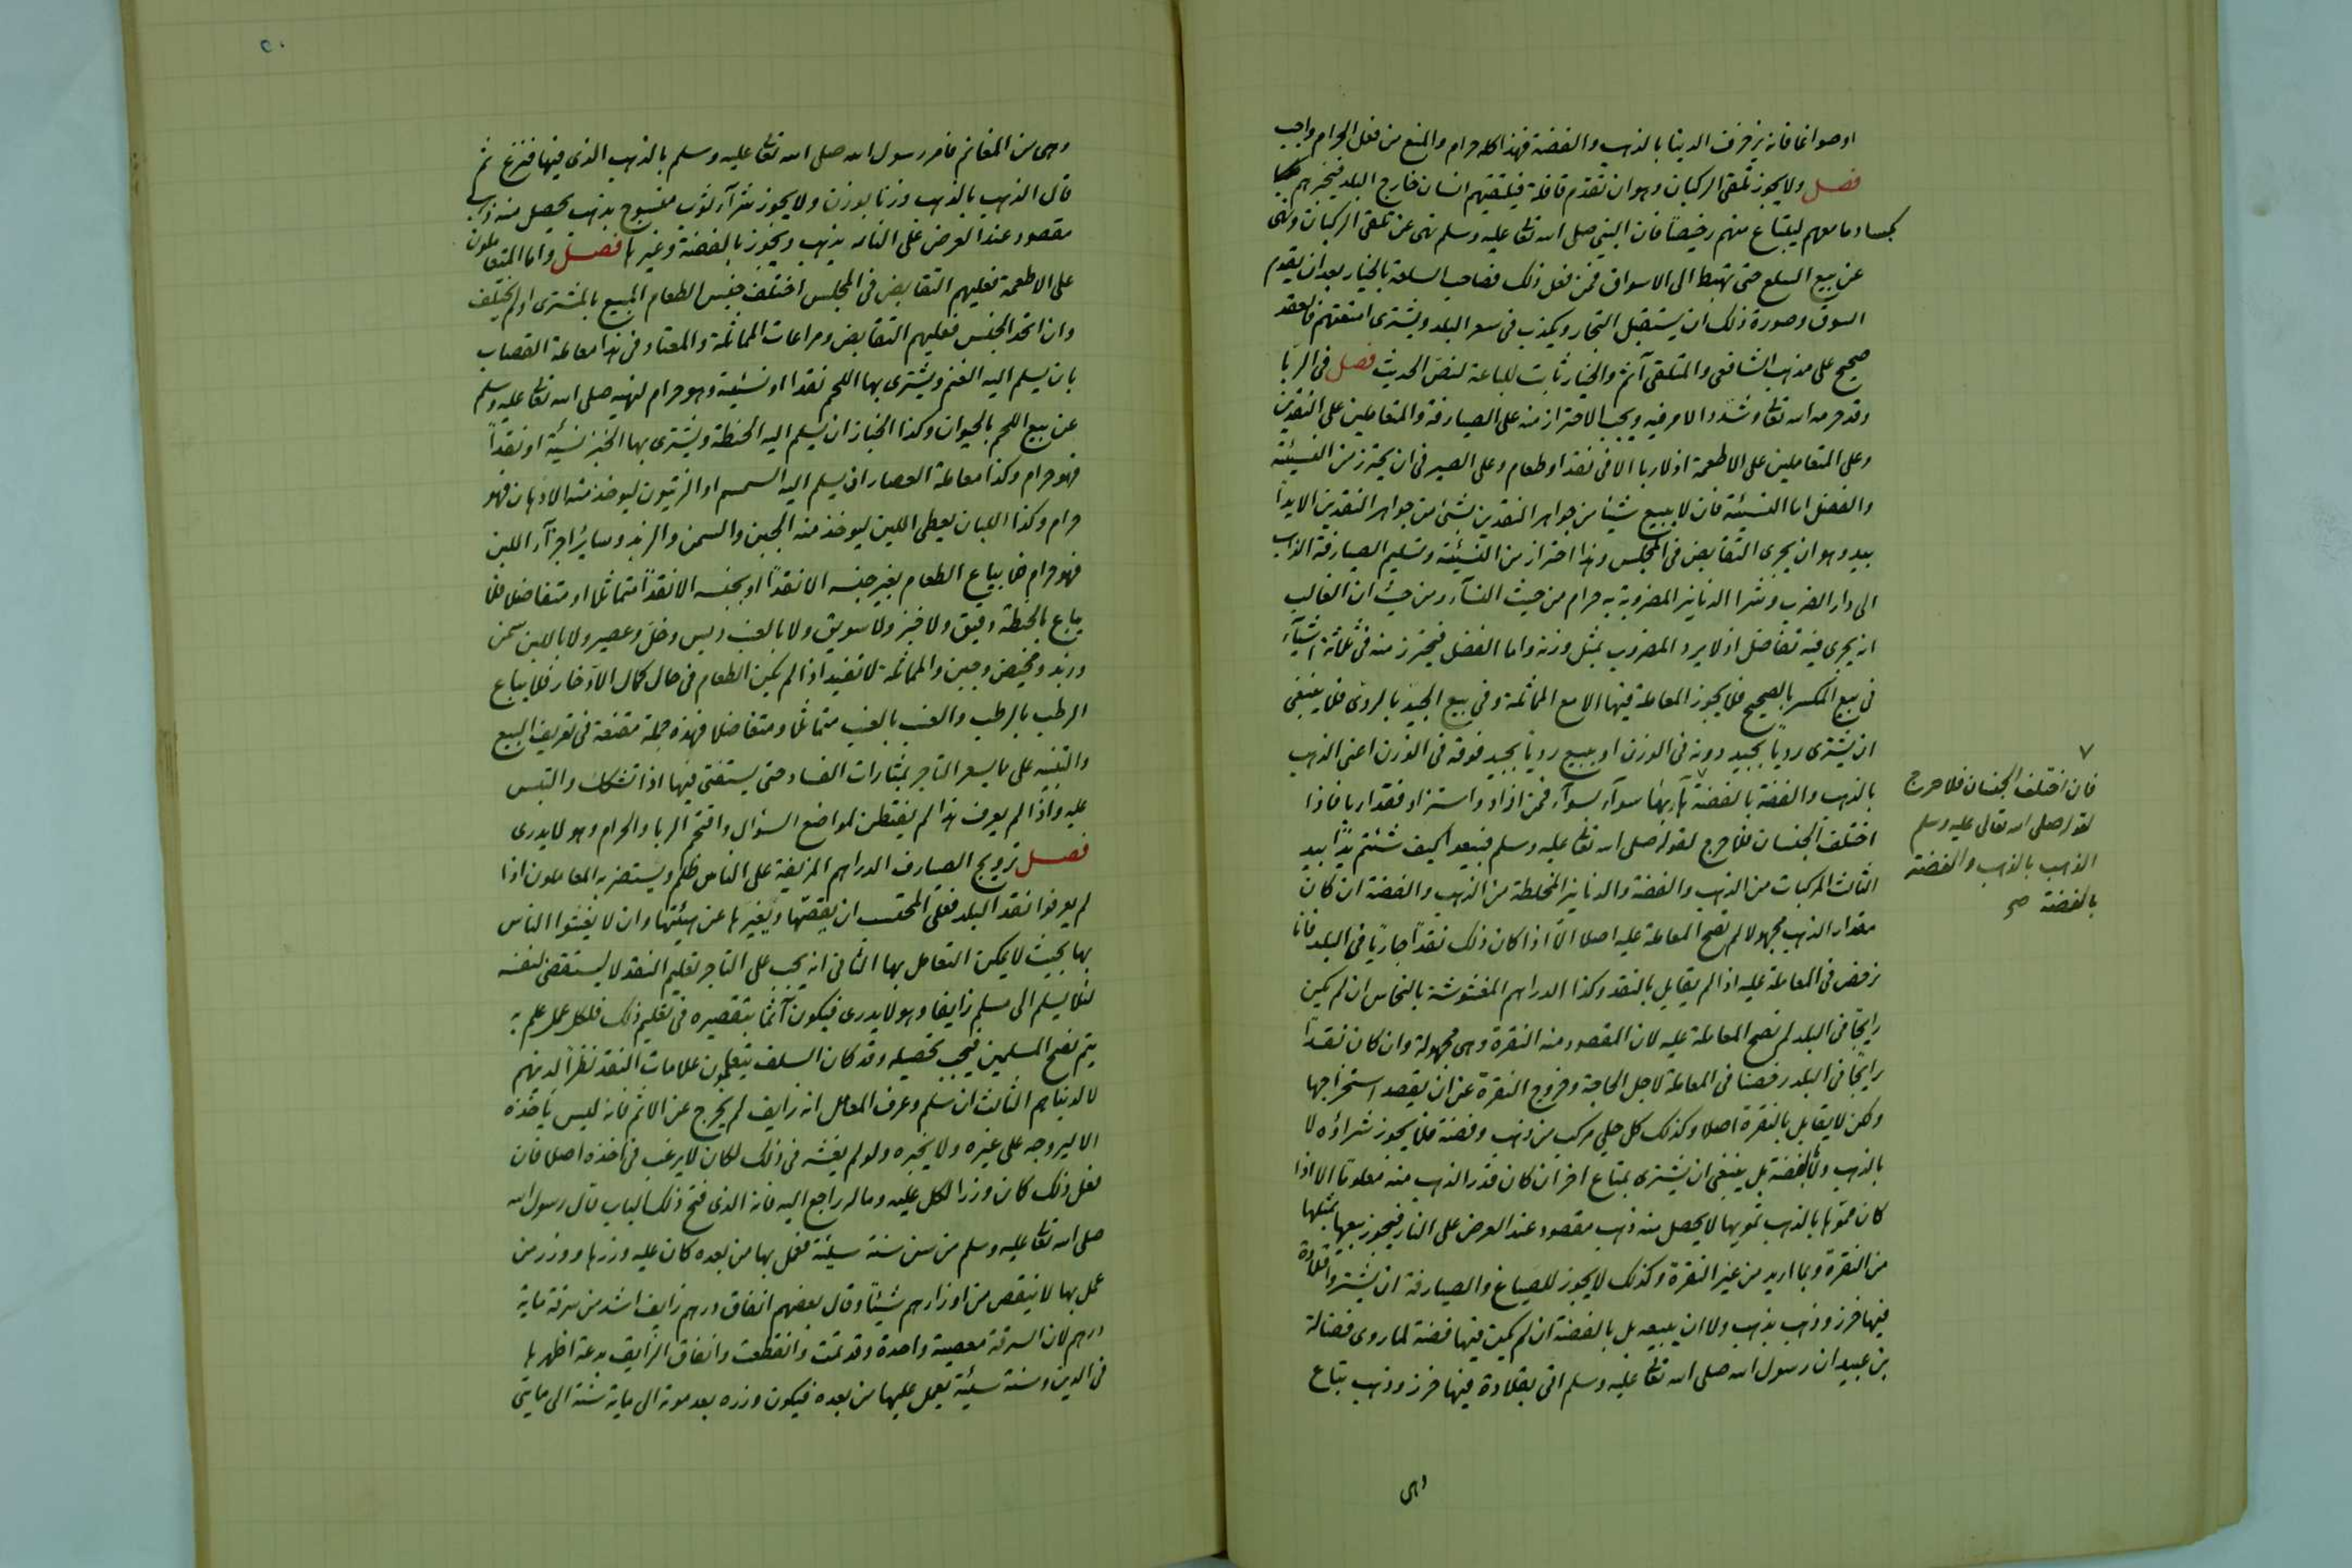 او صواغا فانه يزخرف الدينا بالذهب والفضة فهذا كله حرام والمنع من فعل الحرام واجب
فصل ولا يجوز تلقى الركبان وهو ان تقدم قافلة فيلقتيهم انسان خارج البلد فيخبرهم
بكساد ما معهم ليبتاع منهم رخيصاً فان النبى صلى الله تعالى عليه وسلم نهى عن تلقى الركبان ونهى
عن بيع السلع حتى تهبط الى الاسواق فمن فعل ذلك فصاحب السلعة بالخيار بعد ان يقدم
السوق وصورة ذلك ان يستقبل التجار ويكذب فى سعر البلد ويشترى امتعتهم فالعقد
صحيح على مذهب الشافعى والمتلقى آثم والخيار ثابت للباعة لنص الحديث فصل فى الربا
وقد حرمه الله تعالى وشدد الامر فيه ويجب الاحتراز منه على الصيارفة والمتعاملين على النقدين
وعلى المتعاملين على الاطعمة اذ لا ربا الا فى نقد او طعام وعلى الصيرفى ان يحترز من النسيئة
والفضل اما النسيئة فان لا يبيع شيئا من جواهر النقدين بشئ من جواهر النقدين الا يداً
بيد وهو ان يجرى التقابض فى المجلس وهذا احتراز من النسيئة وتسليم الصيارفة الذهب
الى دار الضرب وشرا الدنانير المضروبة به حرام من حيث النسآء ومن حيث ان الغالب
انه يجرى فيه تفاضل اذ لا يرد المضروب بمثل وزنه واما الفضل فيحترز منه فى ثلثة اشيآء
فى بيع المكسر بالصحيح فلا يجوز المعاملة فيها الا مع المماثلة وفى بيع الجيد بالردى فلا ينبغى
ان يشترى رديا بجيد دونه فى الوزن او يبيع رديا بجيد فوقه فى الوزن اعنى الذهب
بالذهب والفضة بالفضة ٧ سوآء بسوآء فمن ازاد واستزاد فقد اربا فاذا
اختلف الجنسان فلا حرج لقوله صلى الله تعالى عليه وسلم فبيعوا كيف شئتم يداً بيد
الثالث المركبات من الذهب والفضة والدنانير المخلطة من الذهب والفضة ان كان
مقدار الذهب مجهولا لم تصح المعاملة عليه اصلا الا اذا كان ذلك نقداً جارياً فى البلد فانا
نرخص فى المعاملة عليه اذا لم يقابل بالنقد وكذا الدراهم المغشوشة بالنحاس ان لم يكن
رايجاً فى البلد لم تصح المعاملة عليه لان المقصود منه النقرة وهى مجهولة وان كان نقداً
رايجاً فى البلد رخصنا فى المعاملة لاجل الحاجة وخروج النقرة عن ان يقصد استخراجها
ولكن لا يقابل بالنقرة اصلا وكذلك كل حلي مركب من ذهب وفضة فلا يجوز شراؤه لا
بالذهب ولا بالفضة بل ينبغى ان يشترى بمتاع اخر ان كان قدر الذهب منه معلوما الا اذا
كان مموها بالذهب تمويها لا يحصل منه ذهب مقصود عند العرض على النار فيجوز بيعها بمثلها
من النقرة وبما اريد من غير النقرة وكذلك لا يجوز للصياغ والصيارفة ان يشتروا قلادة
فيها خرز وذهب بذهب ولا ان يبيعه بل بالفضة ان لم يكن فيها فضة لما روى فضالة
بن عبيد ان رسول الله صلى الله تعالى عليه وسلم اتى بقلادة فيها خرز وذهب تباع
وهى
٧
فان اختلف الجنسان فلا حرج
لقوله صلى الله تعالى عليه وسلم
الذهب بالذهب والفضة
بالفضة صح
٥٠
وهى من المغانم فامر رسول الله صلى الله تعالى عليه وسلم بالذهب الذى فيها فنزع ثم
قال الذهب بالذهب وزنا بوزن ولا يجوز شرآء ثوب منسوج بذهب يحصل منه ذهب
مقصود عند العرض على النار بذهب ويجوز بالفضة وغيرها فصل واما المتعاملون
على الاطعمة فعليهم التقابض فى المجلس اختلف جنس الطعام المبيع بالمشترى او لم يختلف
وان اتحد الجنس فعليهم التقابض ومراعات المماثلة والمعتاد فى هذا معاملة القصاب
بان يسلم اليه الغنم ويشترى بها اللحم نقدا او نسئية وهو حرام لنهيه صلى الله تعالى عليه وسلم
عن بيع اللحم بالحيوان وكذا الخباز ان يسلم اليه الحنطة ويشترى بها الخبز نسئية او نقداً
فهو حرام وكذا معاملة العصار ان يسلم اليه السمسم او الزيتون ليوخذ منه الادهان فهو
حرام وكذا اللبان يعطى اللبن ليوخذ منه الجبن والسمن والزبد وسائر اجزآء اللبن
فهو حرام فلا يباع الطعام بغير جنسه الا نقداً او بجنسه الا نقداً متماثلا او متفاضلا فلا
يباع بالحنطة دقيق ولا خبز ولا سويق ولا بالعنب دبس وخل وعصير ولا باللبن سمن
وزبد ومخيض وجبن والمماثلة لا تفيد اذا لم يكن الطعام فى حال كمال الادخار فلا يباع
الرطب بالرطب والعنب بالعنب متماثلا ومتفاضلا فهذه جملة مقنعة فى تعريف البيع
والتنبيه على ما يشعر التاجر بمثارات الفساد حتى يستفتى فيها اذا تشكك والتبس
عليه واذا لم يعرف هذا لم يفتطن لمواضع السؤال واقتحم الربا والحرام وهو لا يدرى
فصل ترويج الصارف الدراهم المزيفة على الناس ظلم ويستضر به المعاملون اذا
لم يعرفوا نقد البلد فعلى المحتسب ان يقصها ويغيرها عن هيئتها وان لا يغشوا الناس
بها بحيث لا يمكن التعامل بها الثانى انه يجب على التاجر تعليم النقد لا ليستقصى لنفسه
لئلا يسلم الى مسلم زايفا وهو لا يدرى فيكون آثما بتقصيره فى تعليم ذلك فلكل عمل علم به
يتم نصح المسلمين فيجب تحصيله وقد كان السلف يتعلمون علامات النقد نظراً لدينهم
لا لدنياهم الثالث ان سلم وعرف المعامل انه زايف لم يخرج عن الاثم فانه ليس ياخذه
الا ليروجه على غيره ولا يخبره ولو لم يغشه فى ذلك لكان لا يرغب فى اخذه اصلا فان
فعل ذلك كان وزر الكل عليه وماله راجع اليه فانه الذى فتح ذلك الباب قال رسول الله
صلى الله تعالى عليه وسلم من سن سنة سيئة فعمل بها من بعده كان عليه وزرها ووزر من
عمل بها لا ينقص من اوزارهم شيئاً وقال بعضهم انفاق درهم زايف اشد من سرقة ماية
درهم لان السرقة معصية واحدة وقد تمت وانقطعت وانفاق الزايف بدعة اظهرها
فى الدين وسنة سيئة يعمل عليها من بعده فيكون وزره بعد موته الى ماية سنة الى مايتى